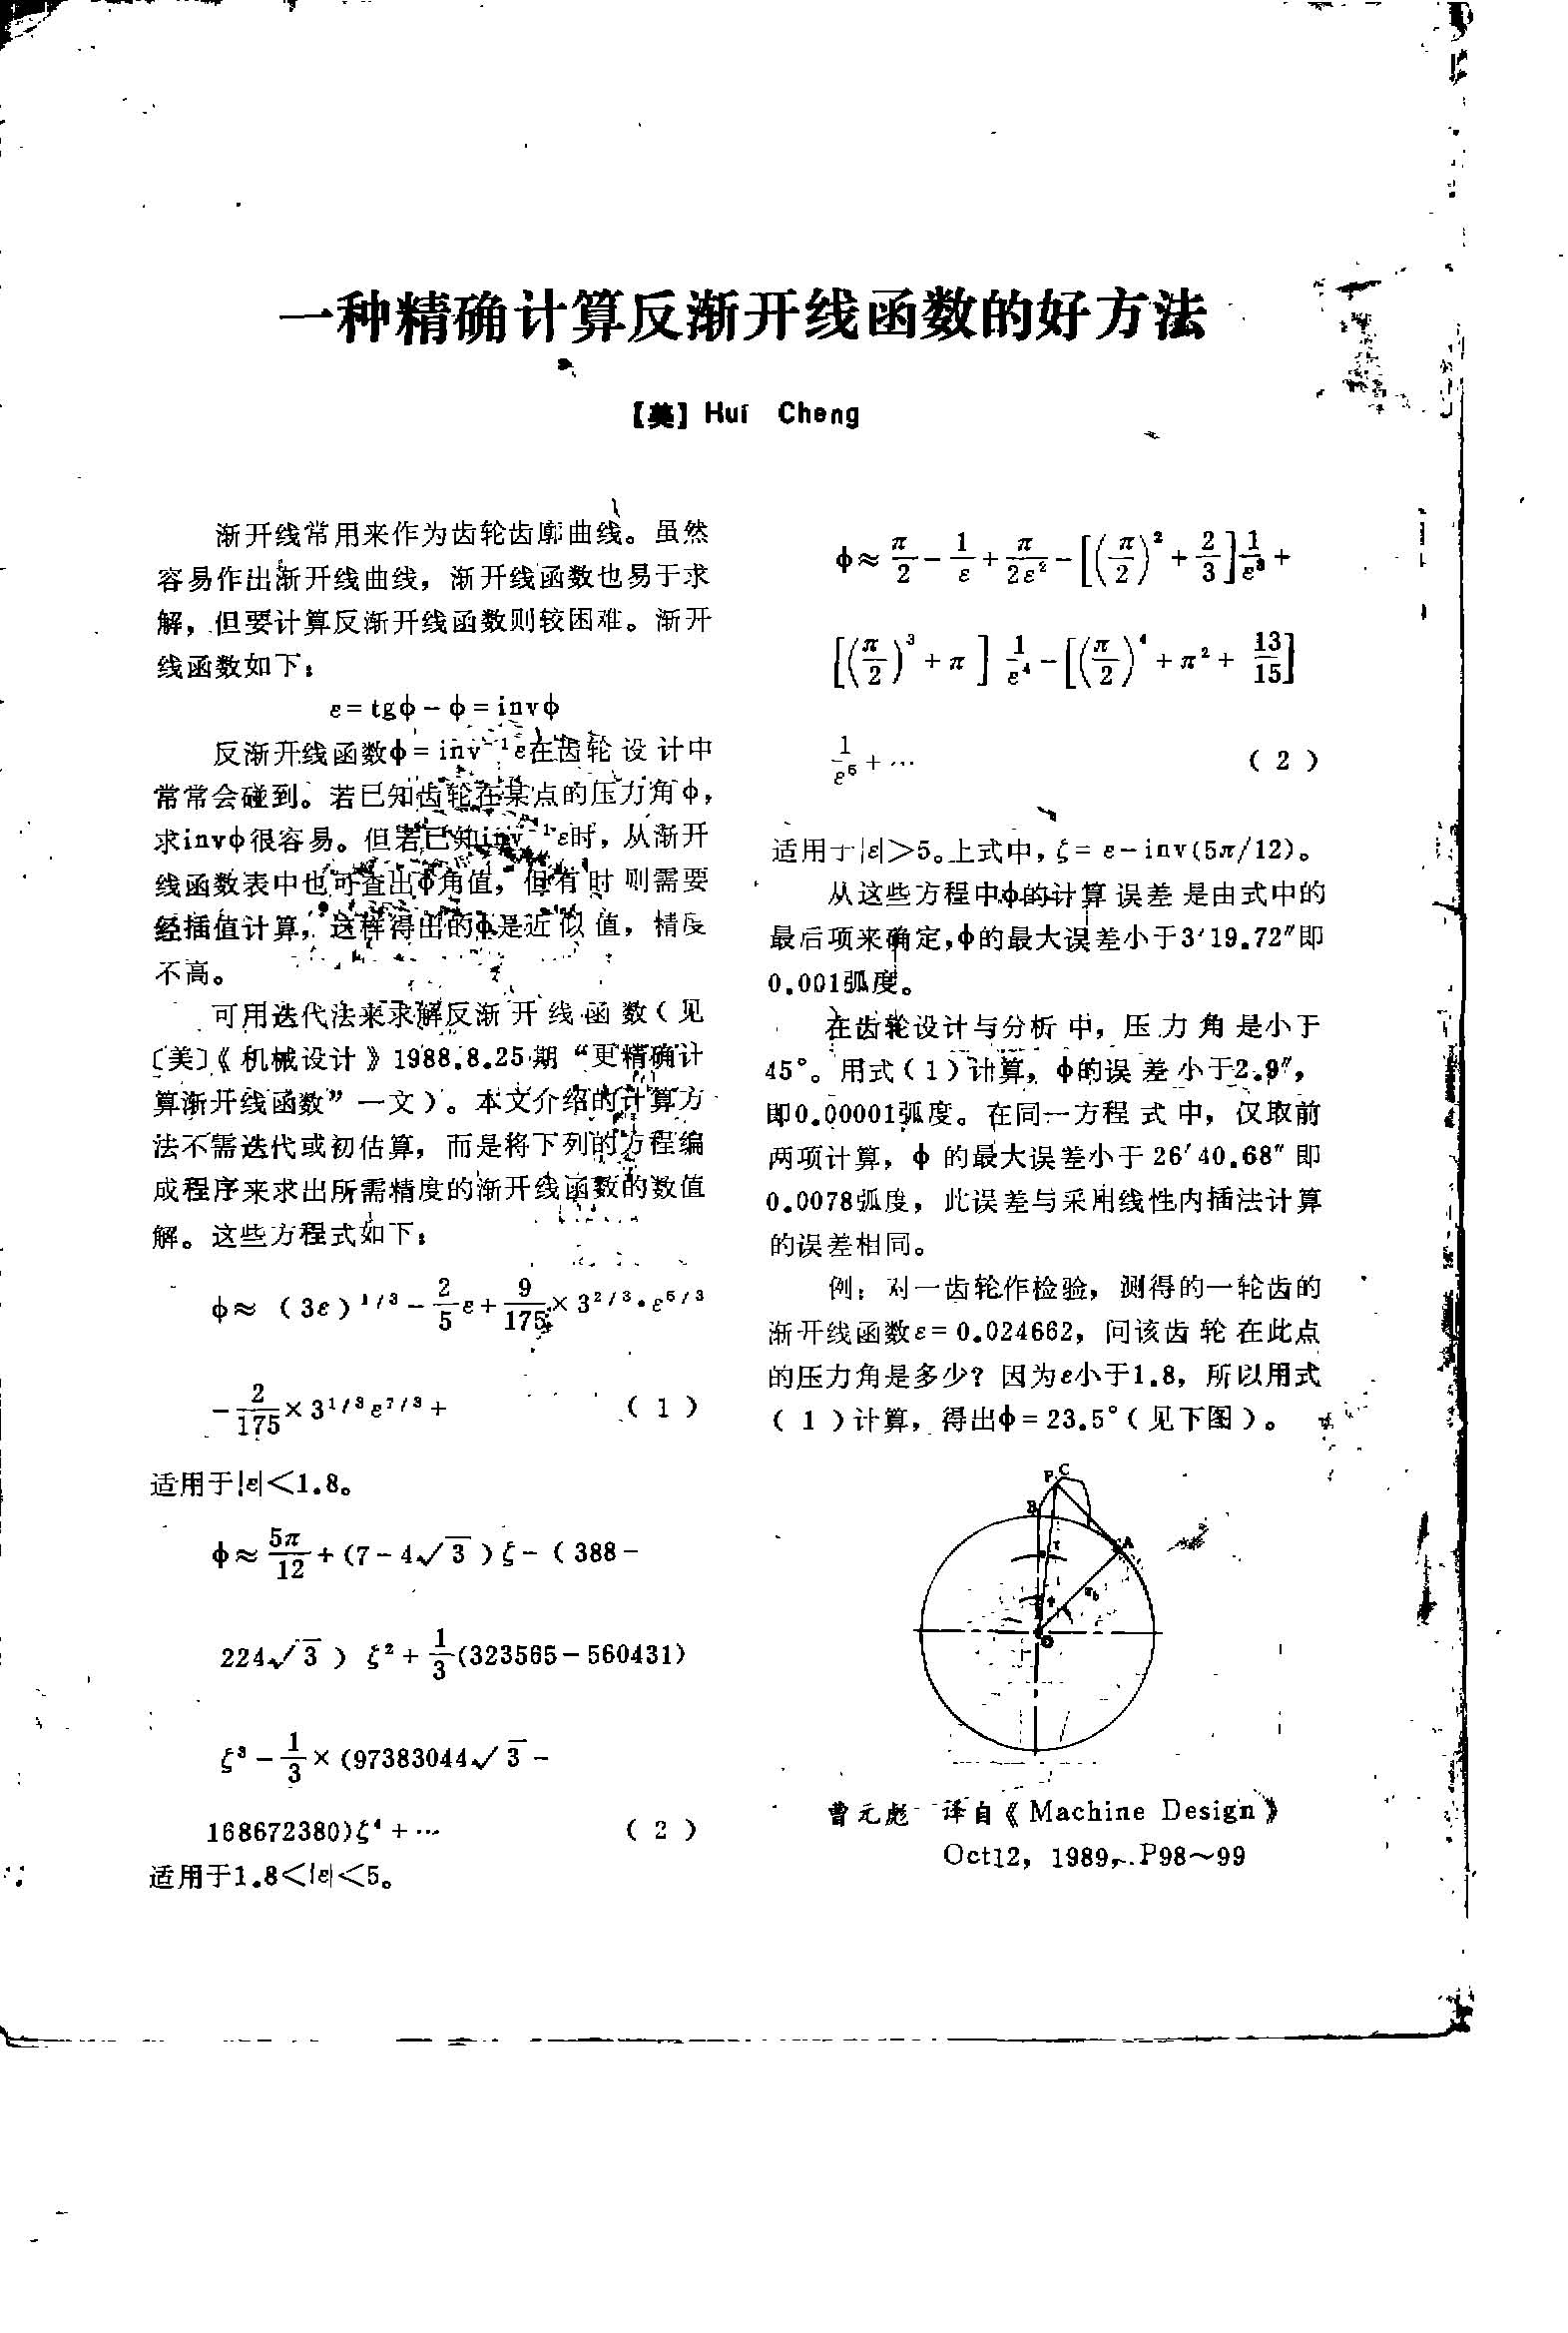 一种精确计算反渐开线函数的好方法
【美】Hui Cheng
渐开线常用来作为齿轮齿廓曲线。虽然
容易作出渐开线曲线，渐开线函数也易于求
解，但要计算反渐开线函数则较困难。渐开
线函数如下：
ε=tgφ-φ=invφ
反渐开线函数φ=inv⁻¹ε在齿轮设计中
常常会碰到。若已知齿轮在某点的压力角φ，
求invφ很容易。但若已知inv⁻¹ε时，从渐开
线函数表中也可查出φ角值，但有时则需要
经插值计算，这样得出的φ是近似值，精度
不高。
可用迭代法来求解反渐开线函数（见
〔美〕《机械设计》1988.8.25期“更精确计
算渐开线函数”一文）。本文介绍的计算方
法不需迭代或初估算，而是将下列的方程编
成程序来求出所需精度的渐开线函数的数值
解。这些方程式如下：
φ≈（3ε）^1/3-2/5 ε+9/175×3^2/3·ε^5/3
-2/175×3^1/3 ε^7/3+ （1）
适用于|ε|＜1.8。
φ≈5π/12+(7-4√3)ζ-（388-
224√3）ζ²+1/3(323565-560431)
ζ³-1/3×(97383044√3-
168672380)ζ⁴+… （2）
适用于1.8＜|ε|＜5。
φ≈π/2-1/ε+π/2ε²-[(π/2)²+2/3]1/ε³+
[(π/2)³+π]1/ε⁴-[(π/2)⁴+π²+13/15]
1/ε⁵+… （2）
适用于|ε|＞5。上式中，ζ=ε-inv(5π/12)。
从这些方程中φ的计算误差是由式中的
最后项来确定，φ的最大误差小于3′19.72″即
0.001弧度。
在齿轮设计与分析中，压力角是小于
45°。用式（1）计算，φ的误差小于2.9″，
即0.00001弧度。在同一方程式中，仅取前
两项计算，φ的最大误差小于26′40.68″即
0.0078弧度，此误差与采用线性内插法计算
的误差相同。
例：对一齿轮作检验，测得的一轮齿的
渐开线函数ε=0.024662，问该齿轮在此点
的压力角是多少？因为ε小于1.8，所以用式
（1）计算，得出φ=23.5°（见下图）。
P C
B
A
r_b
O
曹元彪 译自《Machine Design》
Oct12，1989，P98～99